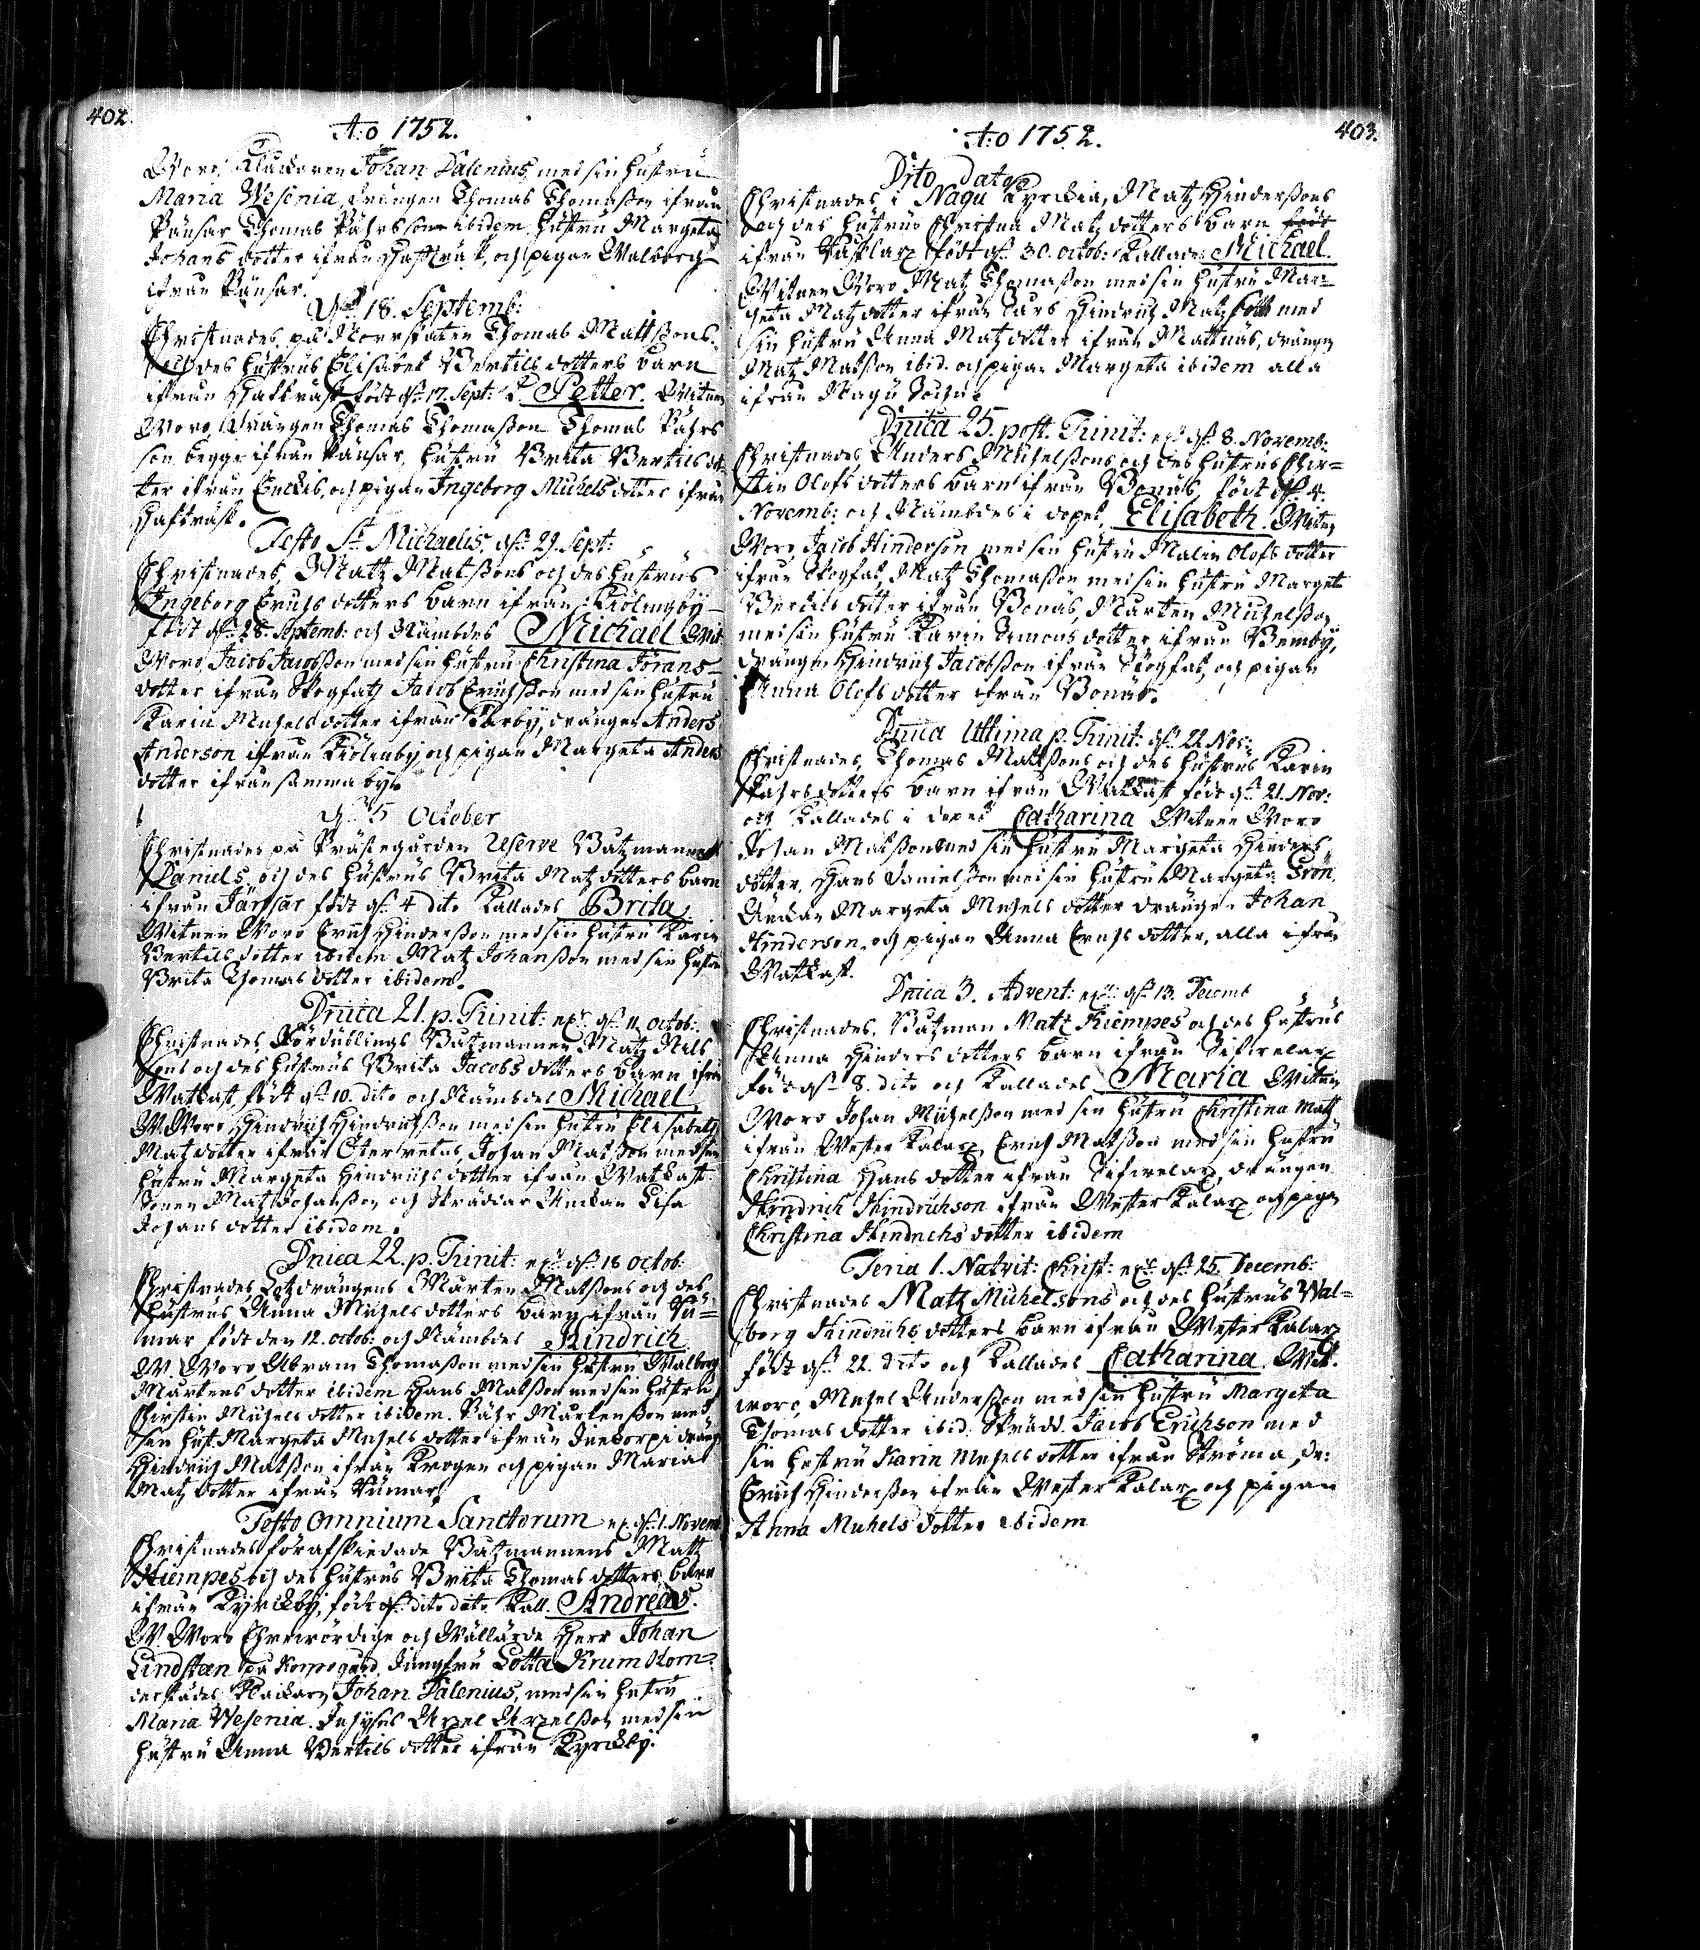 402.
A:o 1752.
Woro, Klåckaren Johan Dalenius, med sin hustru
Maria Wesenia, drängen Thomas Thomasson ifrån
Pänsar Thomas Pährsson ibidem hustru Margeta
Johans dotter ifrån och pigan Walborg
ifrån Pänsar.
d. 18. Septemb:
Christnades på Thomas Mattssons
och des hustrus Elisabet Bertils dotters barn
ifrån födt d. 17. Sept: Petter. Witnen
Woro, drängen Thomas Thomasson Thomas Pährs
son begge ifrån Pänsar, hustru Brita Bertils dot-
ter ifrån och pigan Ingeborg Michels dotter ifrån
Festo St Michaelis, d. 29. Sept:
Christnades, Matz Matssons och des hustrus
Ingeborg Erichs dotters barn ifrån
födt d. 28. Septemb: och Nämbdes Michael Wit
Woro, Jacob Jacobsson med sin hustru Christina Jörans-
dotter ifrån Skogfatz Jacob Erichsson med sin hustru
Karin Michels dotter ifrån drängen Anders
Anderson ifrån och pigan Margeta Anders
dotter ifrån samma by.
d. 5 October
Christnades på Prästegården Reserve Båtzmannens
Daniels, och des hustrus Brita Matz dotters barn
ifrån Järfsar födt d. 4 dito Kallades Brita.
Witnen Woro Erich Hindersson med sin hustru Karin
Bertils dotter ibidem Matz Johansson med sin hustru
Brita Thomas dotter ibidem.
Dnica 21. p. Trinit: d. 11. octob:
Christnades Båtzmannens Matz Nils
sons och des hustrus Brita Jacobs dotters barn ifrån
Wattkast, födt d. 10. dito och Nämbdes Michael
W. Woro Hindrich Hindrichsson med sin hustru Elisabeth
Matz dotter ifrån Johan Matsson med sin
hustru Margeta Hindrichs dotter ifrån Wattkast.
Matz Johansson och Lisa
Johans dotter ibidem.
Dnica 22. p. Trinit: d. 18 octob:
Christnades drängens Mårten Matssons och des
hustrus Anna Michels dotters barn ifrån
födt den 12. octob: och Nämbdes Hindrich
W. Woro, Abram Thomasson med sin hustru Walborg
Mårtens dotter ibidem Hans Matsson med sin hustru
Christin Michels dotter ibidem. Pähr Mårtensson med
sin hust. Margeta Michels dotter ifrån dräng
Hindrich Matsson ifrån Krogen och pigan Maria
Matz dotter ifrån
Festo Omnium Sanctorum d. 1. Novemb
Christnades förafskiedade Båtzmannens Matz
Kiempes och des hustrus Brita Thomas dotters barn
ifrån Kyrckby, födt d. dito dato Kall. Andreas.
W. Woro Ehrewördige och Wällärde Herr Johan
Lindstan på Korpogård, Jungfru Lotta Krum Horn
Klåckaren Johan Dalenius, med sin hustru
Maria Wesenia. Axel Axelsson med sin
hustru Anna Bertils dotter ifrån Kyrckby.
403.
A:o 1752.
Dito Dato
Christnades i Nagu Kyrckia, Matz Hinderssons
och des hustrus Christna Matz dotters barn
ifrån födt d. 30. octob: Kallades Michael.
Witnen Woro Matz Thomasson med sin hustru Mar-
geta Matz dotter ifrån Hindrich Matzson med
sin hustru Anna Matz dotter ifrån Mattnäs, drängen
Matz Matsson ibid. och pigan Margeta ibidem alla
ifrån Nagu Sochn.
Dnica 25. post. Trinit: d. 8. Novemb:
Christnades, Anders Michelssons och des hustrus Chir-
stin Olofs dotters barn ifrån Bonäs, födt d. 4.
Novemb: och Nämbdes i dopet, Elisabeth. Witnen
Woro, Jacob Hinderson med sin hustru Malin Olofs dotter
ifrån Skogfat, Matz Thomasson med sin hustru Margeta
Bertils dotter ifrån Bonäs, Mårten Michelsson
med sin hustru Karin Simons dotter ifrån
drängen Heindrich Jacobsson ifrån Skogfat, och pigan
Anna Olofs dotter ifrån Bonäs.
Dnica Ultima p. Trinit: d. 22. Nov:
Christnades, Thomas Matssons och des hustrus Karin
Pährs dotters barn ifrån Wattkast födt d. 21. Nov:
och Kallades i dopet Catharina Witnen Woro
Johan Matsson med sin hustru Margeta Hinders
dotter, Hans Danielsson med sin hustru Margeta
Margeta Michels dotter drängen Johan
Hinderson, och pigan Anna Erichs dotter, alla ifrån
Wattkast.
Dnica 3. Advent: d. 13. Decemb
Christnades, Båtzman Matz Kiempes och des hustrus
Anna Hinders dotters barn ifrån
födt d. 8. dito och Kallades Maria Witnen
Woro Johan Michelsson med sin hustru Christina Matz
ifrån Wester Kalax, Erich Matsson med sin hustru
Christina Hans dotter ifrån drängen
Hindrich Hindrichson ifrån Wester Kalax och pigan
Christina Hindrichs dotter ibidem
Feria 1. Natvit: Christ: d. 25. Decemb:
Christnades Matz Michelsons och des hustrus Wal-
borg Hindrichs dotters barn ifrån Wester Kalax
födt d. 22. dito och Kallades Catharina. Wit.
woro, Michel Andersson med sin hustru Margeta
Thomas dotter ibid. Skrädd. Jacob Erichson med
sin hustru Karin Michels dotter ifrån Ströma, dr:
Erich Hindersson ifrån Wester Kalax och pigan
Anna Michels dotter ibidem